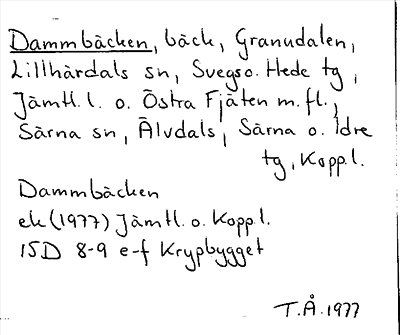 Dammbäcken, bäck, Granudalen,
Lillhärdals sn, Svegs o. Hede tg,
Jämtl. l. o. Östra Fjäten m. fl.,
Särna sn, Älvdals, Särna o. Idre
tg, Koppl.
Dammbäcken
ek (1977) Jämtl. o. Koppl.
15D 8-9 e-f Krypbygget
T.Å. 1977